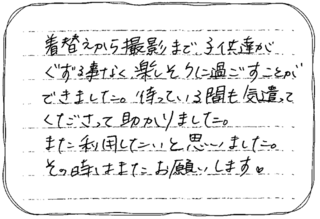 着替えから撮影まで、子供達が
ぐずる事なく楽しそうに過ごすことが
できました。待っている間も気遣って
くださって助かりました。
また利用したいと思いました。
その時はまたお願いします。